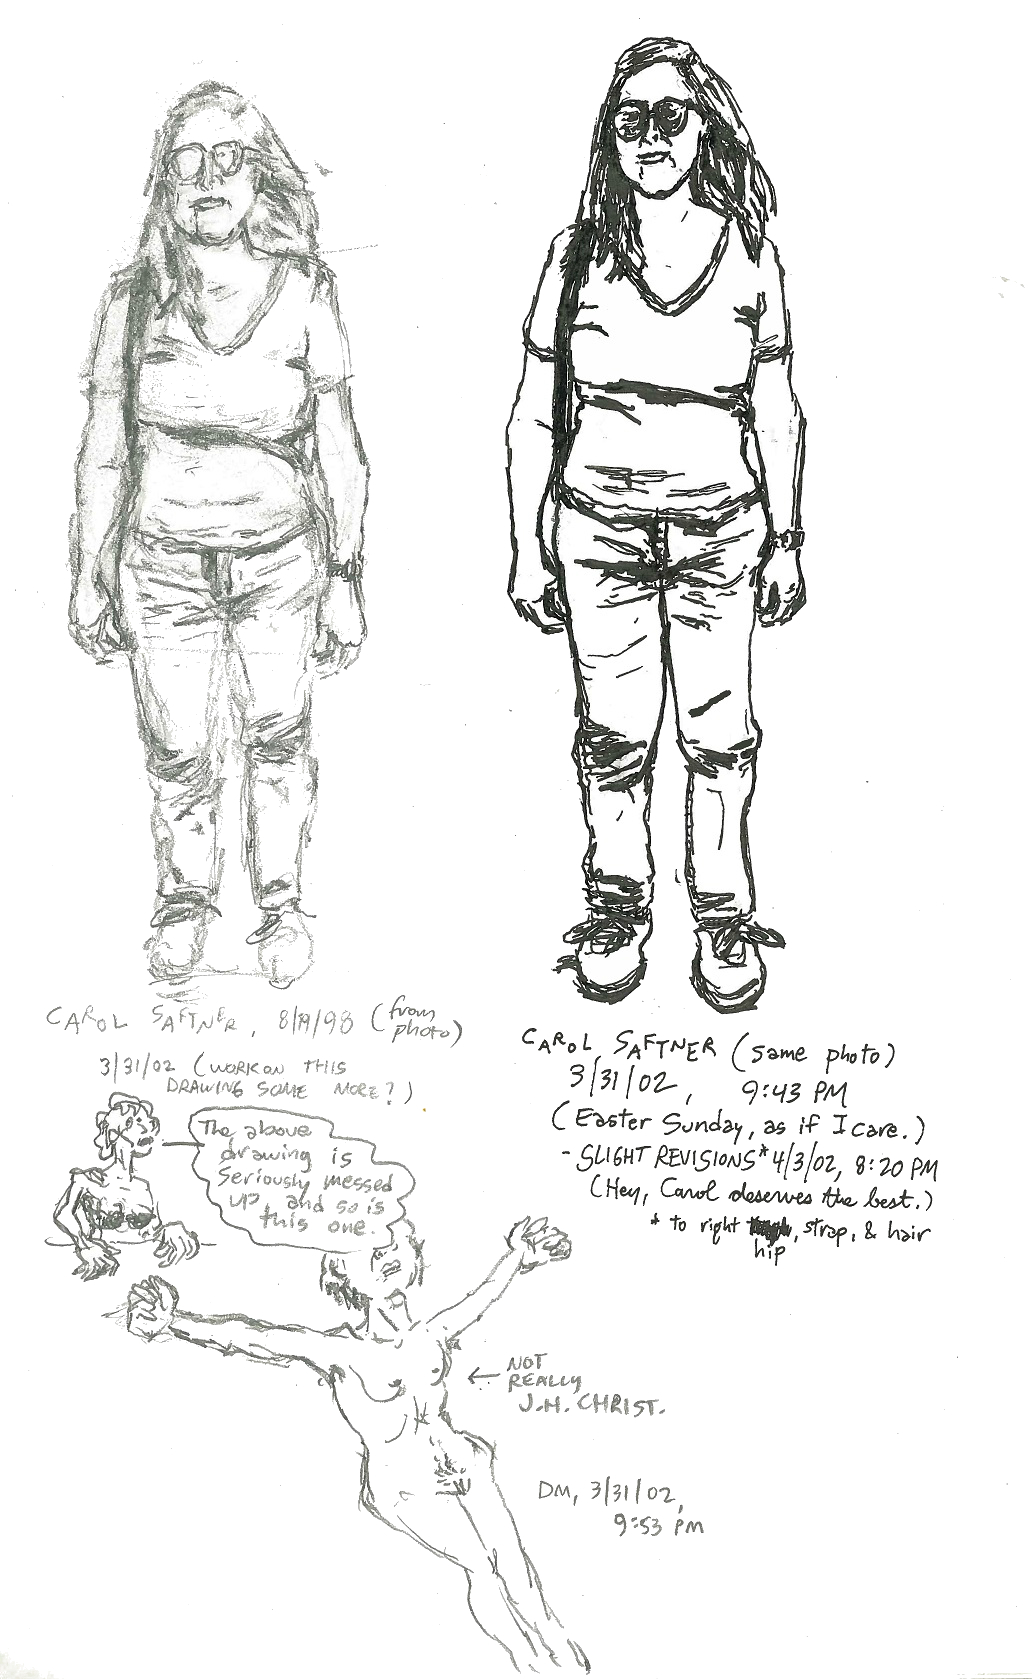 CAROL SAFTNER, 8/19/98 (from photo)
3/31/02 (WORK ON THIS
DRAWING SOME MORE?)
The above
drawing is
seriously messed
up, and so is
this one.
CAROL SAFTNER (same photo)
3/31/02, 9:43 PM
(Easter Sunday, as if I care.)
- SLIGHT REVISIONS* 4/3/02, 8:20 PM
(Hey, Carol deserves the best.)
* to right hip, strap, & hair
← NOT
REALLY
J.H. CHRIST.
DM, 3/31/02,
9:53 PM